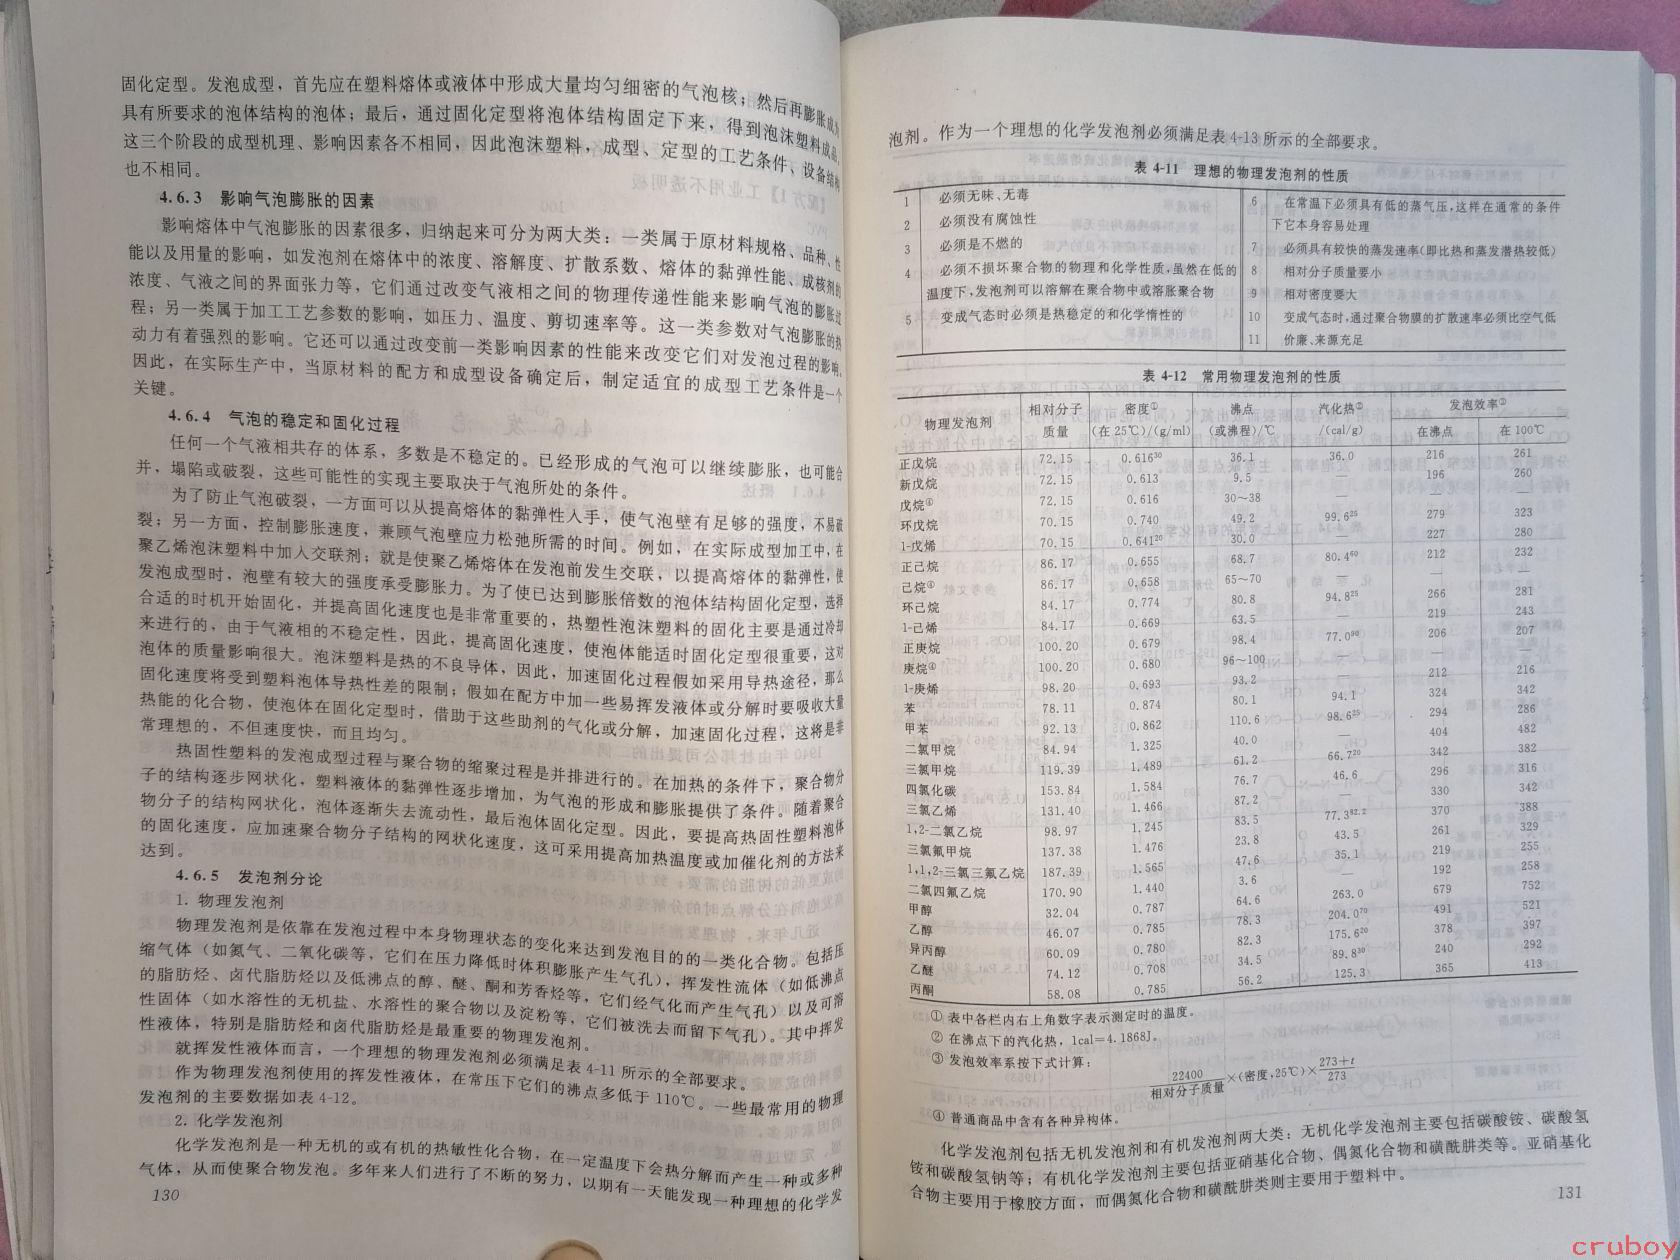 固化定型。发泡成型，首先应在塑料熔体或液体中形成大量均匀细密的气泡核；然后再膨胀成为
具有所要求的泡体结构的泡体；最后，通过固化定型将泡体结构固定下来，得到泡沫塑料成品。
这三个阶段的成型机理、影响因素各不相同，因此泡沫塑料，成型、定型的工艺条件、设备结构
也不相同。
4.6.3 影响气泡膨胀的因素
影响熔体中气泡膨胀的因素很多，归纳起来可分为两大类：一类属于原材料规格、品种、性
能以及用量的影响，如发泡剂在熔体中的浓度、溶解度、扩散系数、熔体的黏弹性能、成核剂的
浓度、气液之间的界面张力等，它们通过改变气液相之间的物理传递性能来影响气泡的膨胀过
程；另一类属于加工工艺参数的影响，如压力、温度、剪切速率等。这一类参数对气泡膨胀的热
动力有着强烈的影响。它还可以通过改变前一类影响因素的性能来改变它们对发泡过程的影响。
因此，在实际生产中，当原材料的配方和成型设备确定后，制定适宜的成型工艺条件是一个
关键。
4.6.4 气泡的稳定和固化过程
任何一个气液相共存的体系，多数是不稳定的。已经形成的气泡可以继续膨胀，也可能合
并，塌陷或破裂，这些可能性的实现主要取决于气泡所处的条件。
为了防止气泡破裂，一方面可以从提高熔体的黏弹性入手，使气泡壁有足够的强度，不易破
裂；另一方面，控制膨胀速度，兼顾气泡壁应力松弛所需的时间。例如，在实际成型加工中，在
聚乙烯泡沫塑料中加入交联剂，就是使聚乙烯熔体在发泡前发生交联，以提高熔体的黏弹性，使
发泡成型时，泡壁有较大的强度承受膨胀力。为了使已达到膨胀倍数的泡体结构固化定型，选择
合适的时机开始固化，并提高固化速度也是非常重要的，热塑性泡沫塑料的固化主要是通过冷却
来进行的，由于气液相的不稳定性，因此，提高固化速度，使泡体能适时固化定型很重要，这对
泡体的质量影响很大。泡沫塑料是热的不良导体，因此，加速固化过程假如采用导热途径，那么
固化速度将受到塑料泡体导热性差的限制；假如在配方中加一些易挥发液体或分解时要吸收大量
热能的化合物，使泡体在固化定型时，借助于这些助剂的气化或分解，加速固化过程，这将是非
常理想的，不但速度快，而且均匀。
热固性塑料的发泡成型过程与聚合物的缩聚过程是并排进行的。在加热的条件下，聚合物分
子的结构逐步网状化，塑料液体的黏弹性逐步增加，为气泡的形成和膨胀提供了条件。随着聚合
物分子的结构网状化，泡体逐渐失去流动性，最后泡体固化定型。因此，要提高热固性塑料泡体
的固化速度，应加速聚合物分子结构的网状化速度，这可采用提高加热温度或加催化剂的方法来
达到。
4.6.5 发泡剂分论
1. 物理发泡剂
物理发泡剂是依靠在发泡过程中本身物理状态的变化来达到发泡目的的一类化合物。包括压
缩气体（如氮气、二氧化碳等，它们在压力降低时体积膨胀产生气孔），挥发性流体（如低沸点
的脂肪烃、卤代脂肪烃以及低沸点的醇、醚、酮和芳香烃等，它们经气化而产生气孔）以及可溶
性固体（如水溶性的无机盐、水溶性的聚合物以及淀粉等，它们被洗去而留下气孔）。其中挥发
性液体，特别是脂肪烃和卤代脂肪烃是最重要的物理发泡剂。
就挥发性液体而言，一个理想的物理发泡剂必须满足表 4-11 所示的全部要求。
作为物理发泡剂使用的挥发性液体，在常压下它们的沸点多低于 110℃。一些最常用的物理
发泡剂的主要数据如表 4-12。
2. 化学发泡剂
化学发泡剂是一种无机的或有机的热敏性化合物，在一定温度下会热分解而产生一种或多种
气体，从而使聚合物发泡。多年来人们进行了不断的努力，以期有一天能发现一种理想的化学发
130
泡剂。作为一个理想的化学发泡剂必须满足表 4-13 所示的全部要求。
表 4-11 理想的物理发泡剂的性质
1 必须无味、无毒
2 必须没有腐蚀性
3 必须是不燃的
4 必须不损坏聚合物的物理和化学性质，虽然在低的
温度下，发泡剂可以溶解在聚合物中或溶胀聚合物
5 变成气态时必须是热稳定的和化学惰性的
6 在常温下必须具有低的蒸气压，这样在通常的条件
下它本身容易处理
7 必须具有较快的蒸发速率（即比热和蒸发潜热较低）
8 相对分子质量要小
9 相对密度要大
10 变成气态时，通过聚合物膜的扩散速率必须比空气低
11 价廉、来源充足
表 4-12 常用物理发泡剂的性质
物理发泡剂 相对分子质量 密度① (在 25℃)/(g/ml) 沸点 (或沸程)/℃ 汽化热② /(cal/g) 发泡效率③ 在沸点 在 100℃
正戊烷 72.15 0.616³⁰ 36.1 36.0 216 261
新戊烷 72.15 0.613 9.5 — 196 260
戊烷④ 72.15 0.616 30～38 — — —
环戊烷 70.15 0.740 49.2 99.6²⁵ 279 323
1-戊烯 70.15 0.641²⁰ 30.0 — 227 280
正己烷 86.17 0.655 68.7 80.4⁶⁰ 212 232
己烷④ 86.17 0.658 65～70 — — —
环己烷 84.17 0.774 80.8 94.8²⁵ 266 281
1-己烯 84.17 0.669 63.5 — 219 243
正庚烷 100.20 0.679 98.4 77.0⁹⁰ 206 207
庚烷④ 100.20 0.680 96～100 — — —
1-庚烯 98.20 0.693 93.2 — 212 216
苯 78.11 0.874 80.1 94.1 324 342
甲苯 92.13 0.862 110.6 98.6²⁵ 294 286
二氯甲烷 84.94 1.325 40.0 — 404 482
三氯甲烷 119.39 1.489 61.2 66.7²⁰ 342 382
四氯化碳 153.84 1.584 76.7 46.6 296 316
三氯乙烯 131.40 1.466 87.2 — 330 342
1,2-二氯乙烷 98.97 1.245 83.5 77.3⁸²·² 370 388
三氯氟甲烷 137.38 1.476 23.8 43.5 261 329
1,1,2-三氯三氟乙烷 187.39 1.565 47.6 35.1 219 255
二氯四氟乙烷 170.90 1.440 3.6 — 192 258
甲醇 32.04 0.787 64.6 263.0 679 752
乙醇 46.07 0.785 78.3 204.0⁷⁰ 491 521
异丙醇 60.09 0.780 82.3 175.6²⁰ 378 397
乙醚 74.12 0.708 34.5 89.8³⁰ 240 292
丙酮 58.08 0.785 56.2 125.3 365 413
① 表中各栏内右上角数字表示测定时的温度。
② 在沸点下的汽化热，1cal=4.1868J。
③ 发泡效率系按下式计算：
22400/相对分子质量×(密度,25℃)×(273+t)/273
④ 普通商品中含有各种异构体。
化学发泡剂包括无机发泡剂和有机发泡剂两大类：无机化学发泡剂主要包括碳酸铵、碳酸氢
铵和碳酸氢钠等；有机化学发泡剂主要包括亚硝基化合物、偶氮化合物和磺酰肼类等。亚硝基化
合物主要用于橡胶方面，而偶氮化合物和磺酰肼类则主要用于塑料中。
131
cruboy